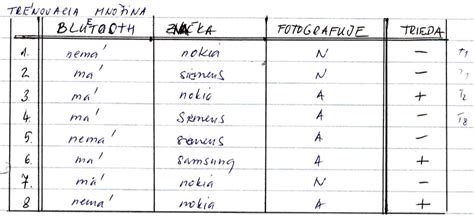 TRÉNOVACIA MNOŽINA
BLUETOOTH ZNAČKA FOTOGRAFUJE TRIEDA
1. nemá nokia N − T1
2 má siemens N − T1
3. má nokia A + T2
4. má Siemens A − T8
5. nemá siemens A −
6. má samsung A +
7. má nokia N −
8 nemá nokia A +